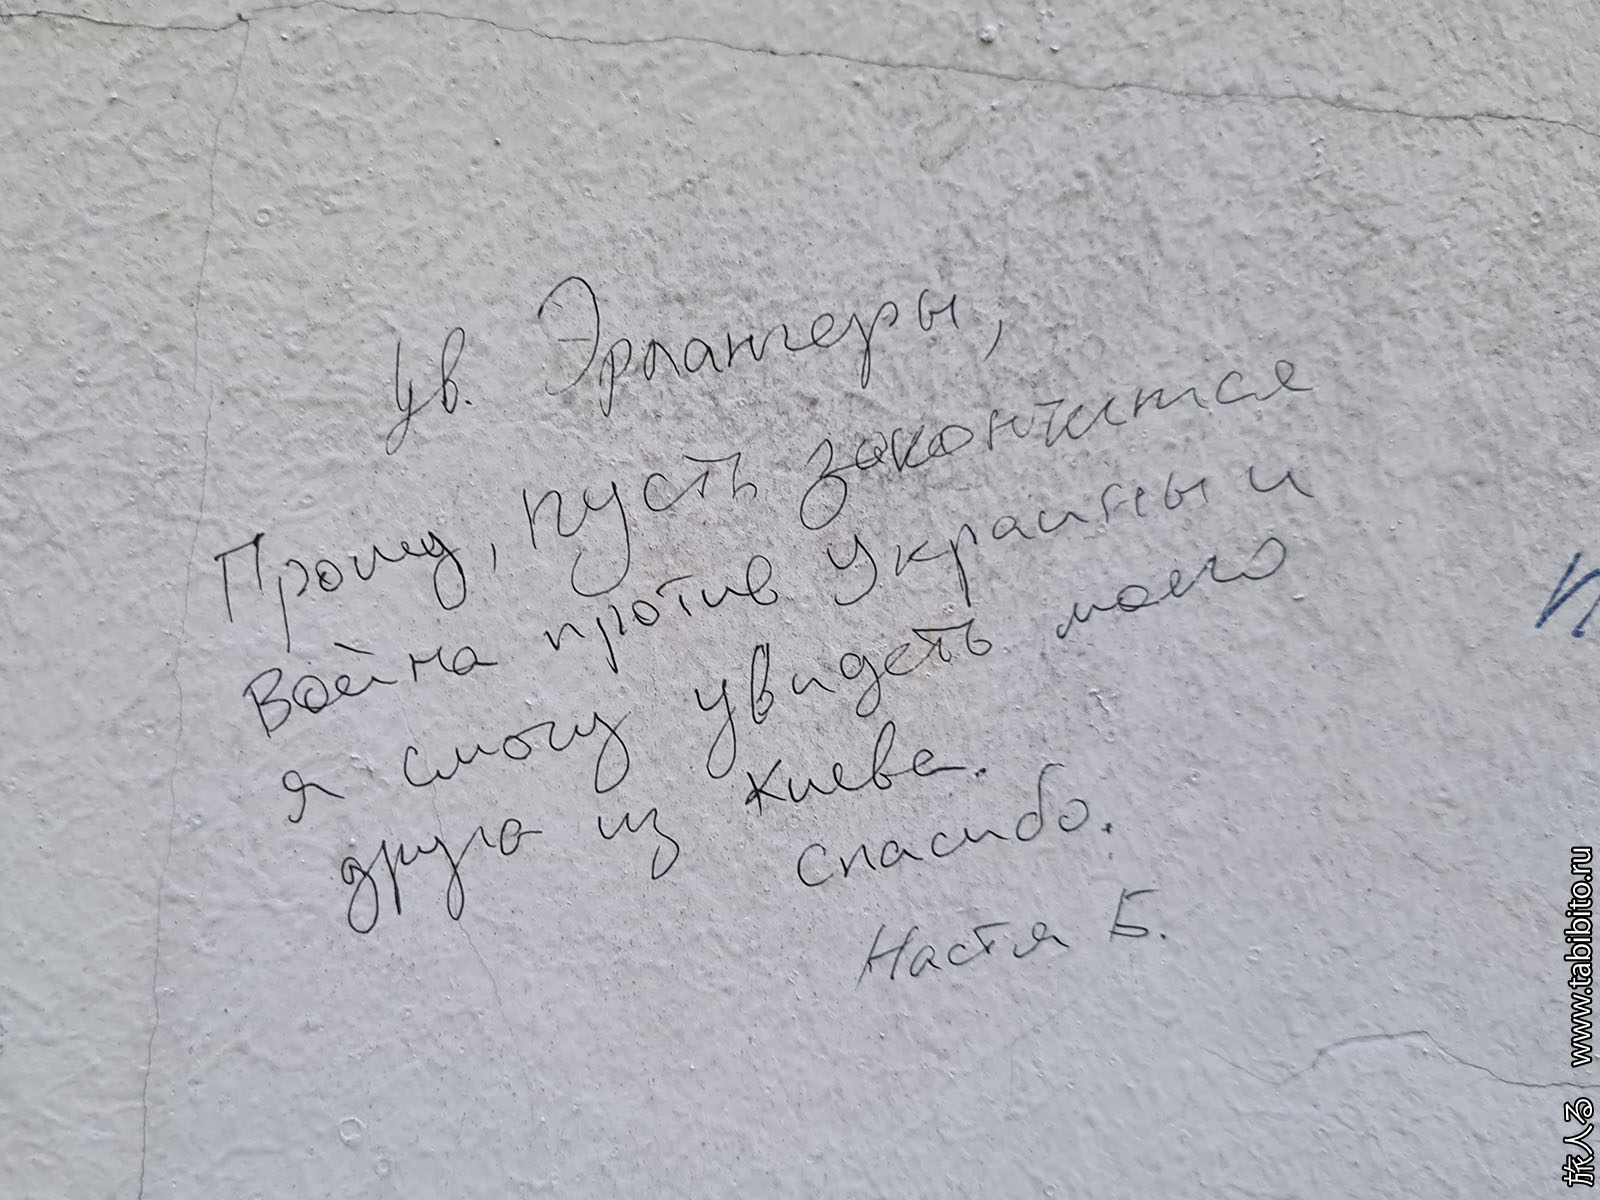 Ув. Эрлангеры,
Прошу, пусть закончится
война против Украины и
я смогу увидеть моего
друга из Киева.
Спасибо.
Настя Б.
旅人る www.tabibito.ru